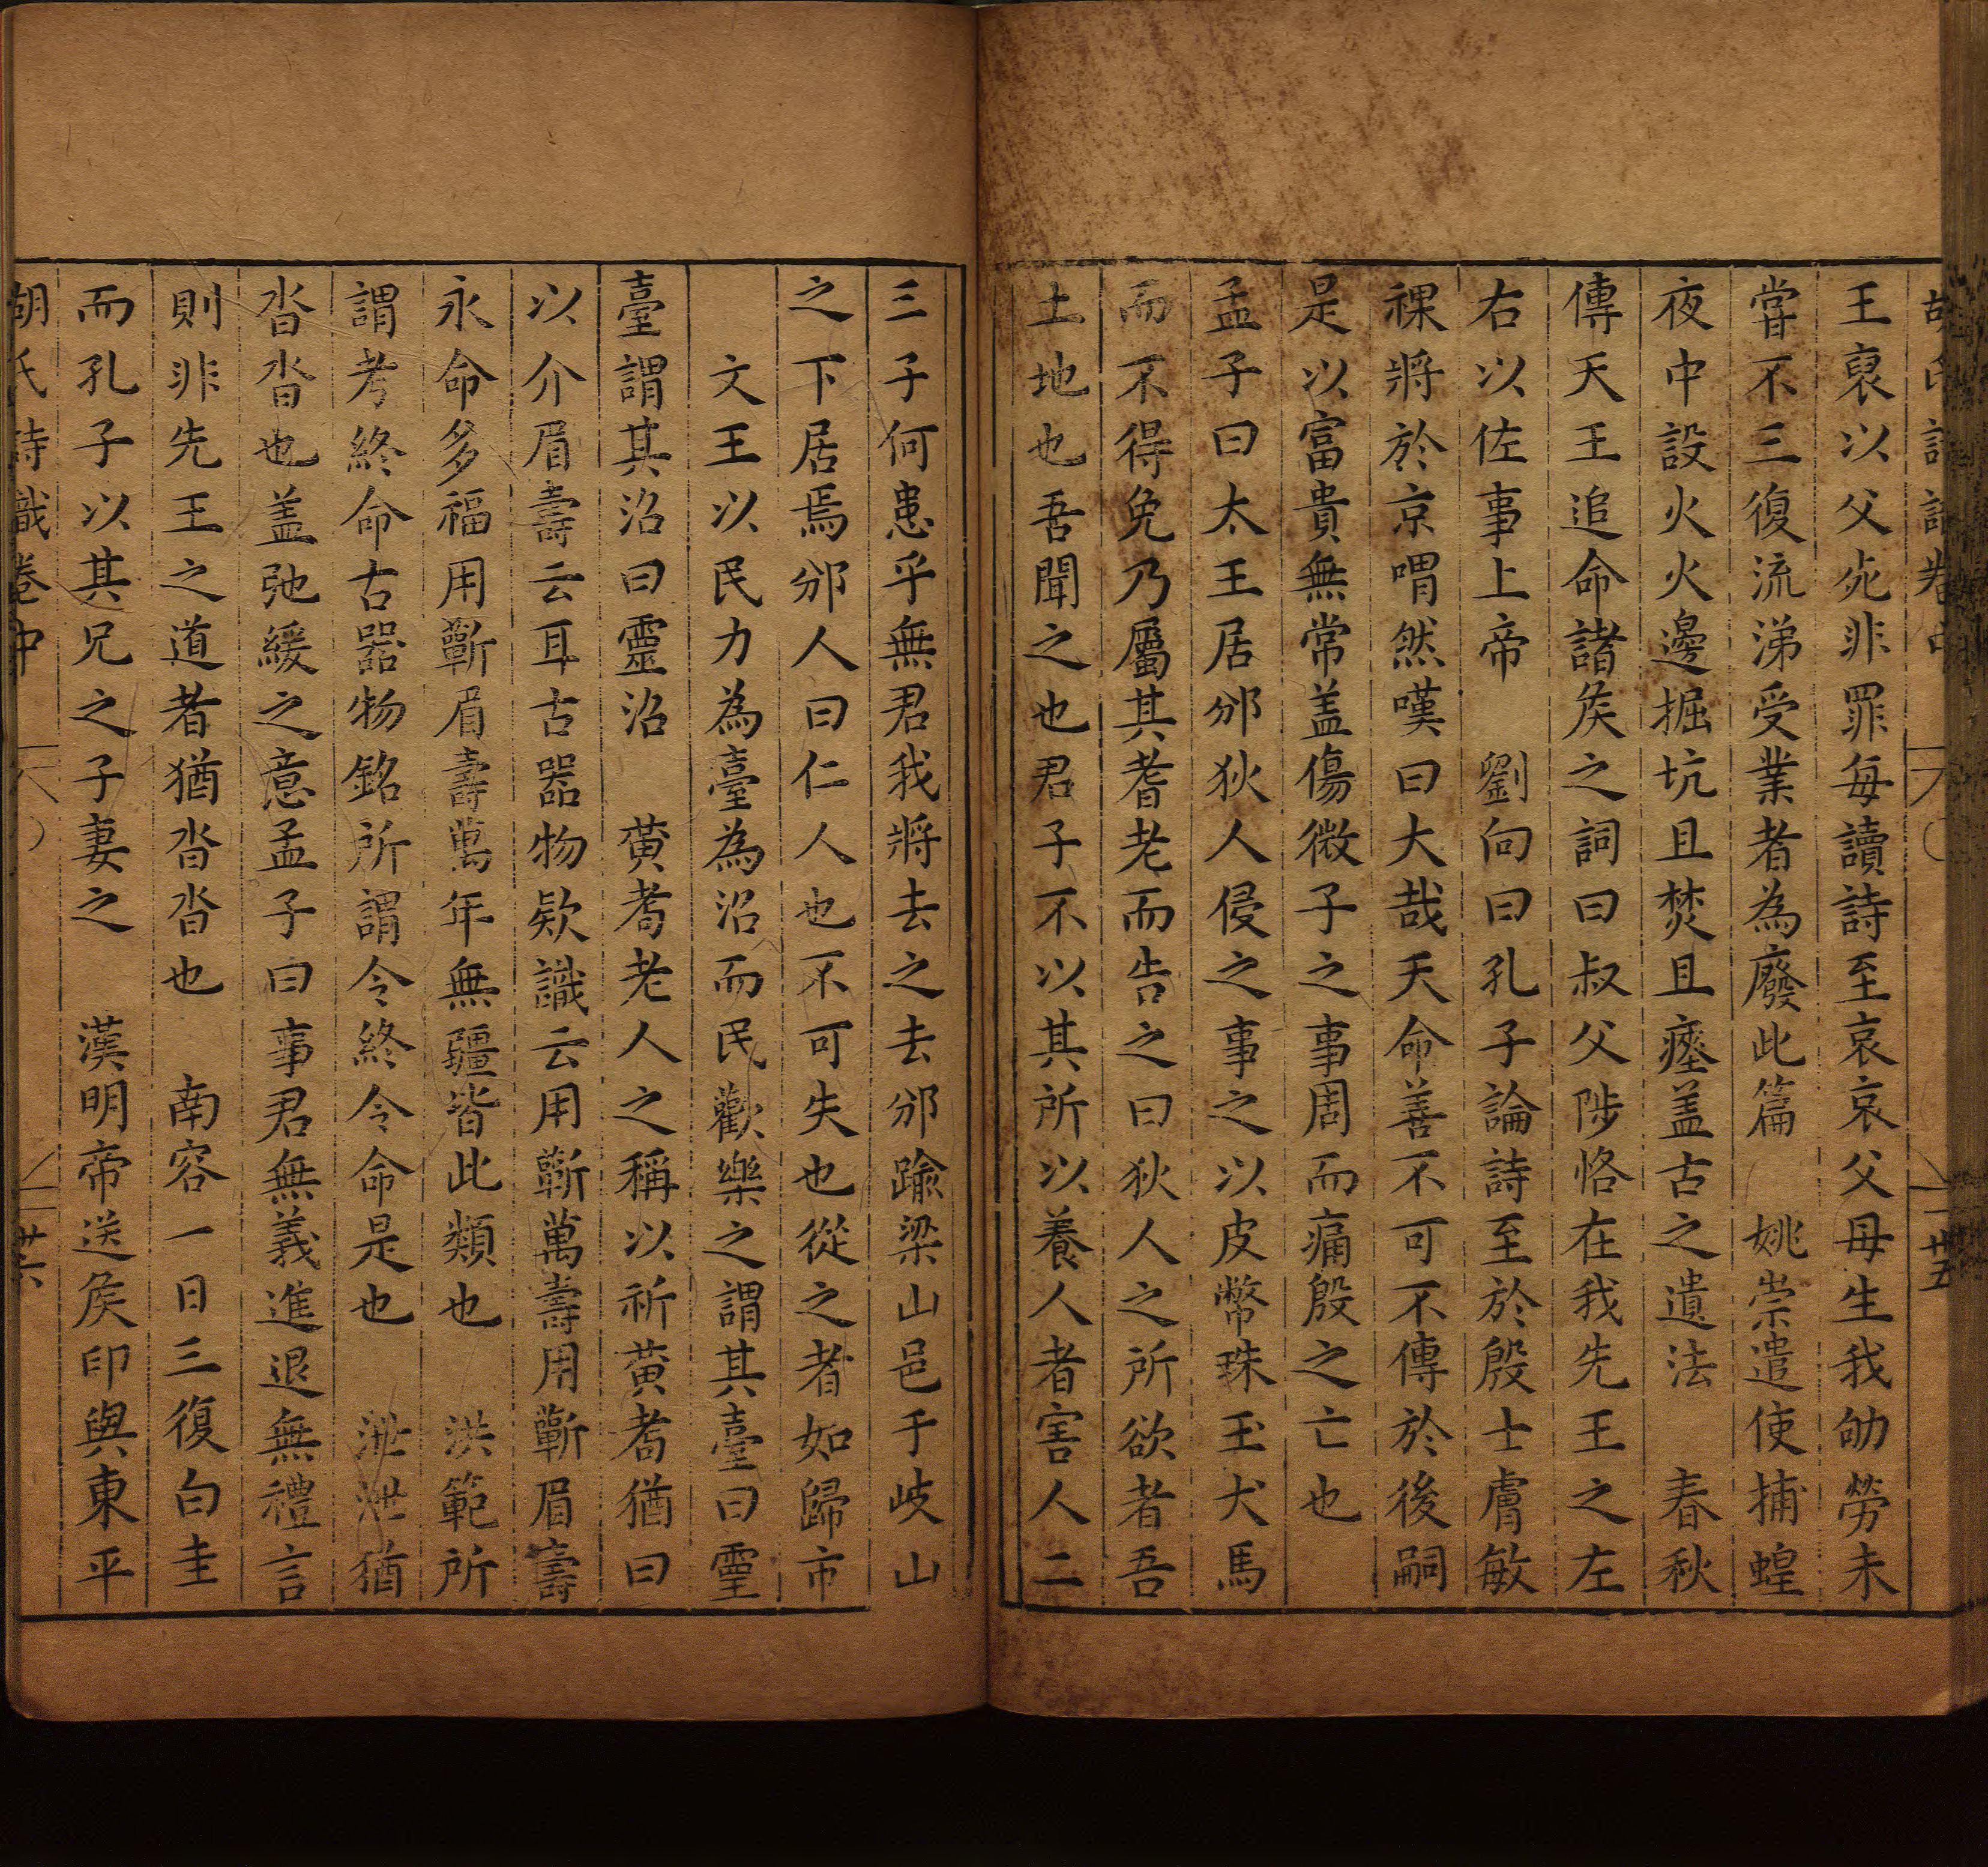 王裒以父死非罪每讀詩至哀哀父母生我劬勞未
嘗不三復流涕受業者為廢此篇　姚崇遣使捕蝗
夜中設火火邊掘坑且焚且瘞盖古之遺法　春秋
傳天王追命諸矦之詞曰叔父陟恪在我先王之左
右以佐事上帝　劉向曰孔子論詩至於殷士膚敏
祼將於京喟然嘆曰大哉天命善不可不傳於後嗣
是以富貴無常盖傷微子之事周而痛殷之亡也
孟子曰太王居邠狄人侵之事之以皮幣珠玉犬馬
而不得免乃屬其耆老而告之曰狄人之所欲者吾
土地也吾聞之也君子不以其所以養人者害人二
三子何患乎無君我將去之去邠踰梁山邑于岐山
之下居焉邠人曰仁人也不可失也從之者如歸市
文王以民力為臺為沼而民歡樂之謂其臺曰靈
臺謂其沼曰靈沼　黄耇老人之稱以祈黄耇猶曰
以介眉壽云耳古器物欵識云用蘄萬壽用蘄眉壽
永命多福用蘄眉壽萬年無疆皆此類也　洪範所
謂考終命古器物銘所謂令終令命是也　泄泄猶
沓沓也盖弛緩之意孟子曰事君無義進退無禮言
則非先王之道者猶沓沓也　南容一日三復白圭
而孔子以其兄之子妻之　漢明帝送矦印與東平
胡氏詩識卷中　廿六